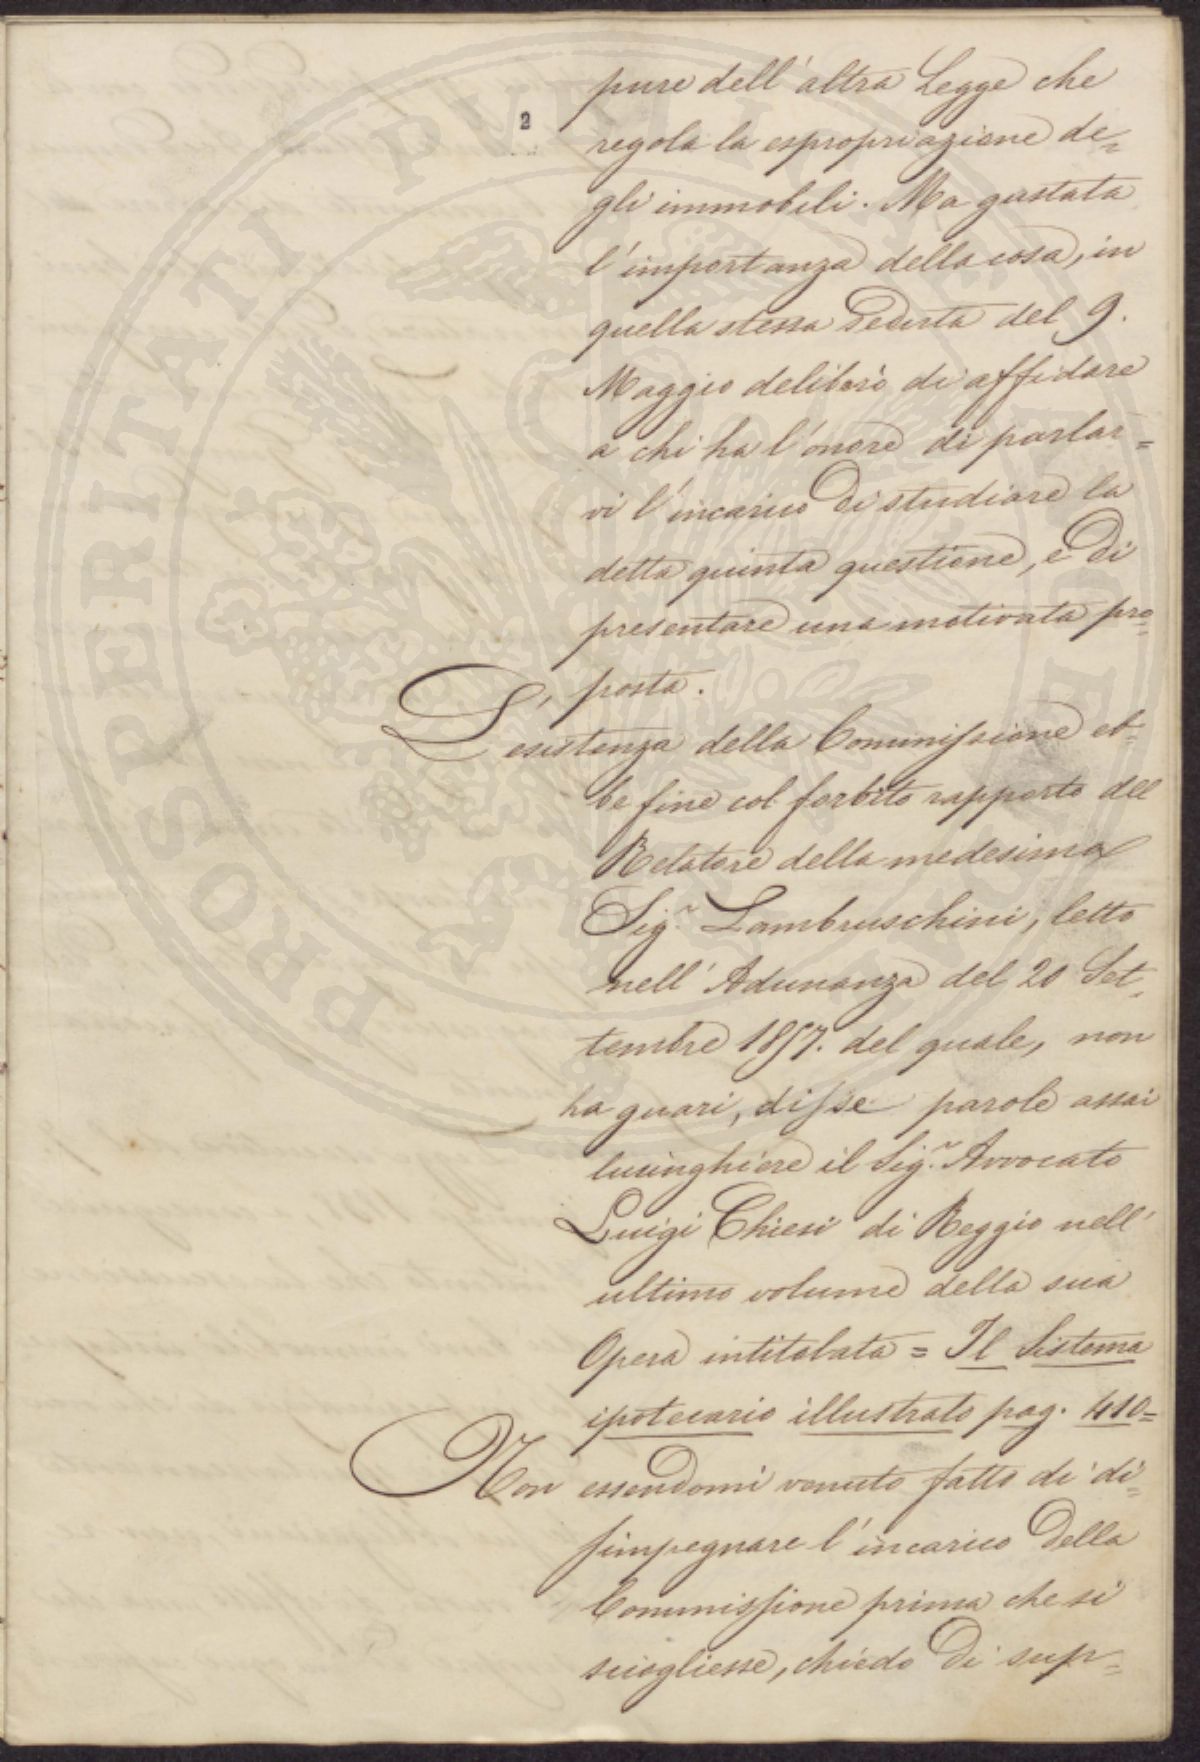 2
pure dell'altra Legge che
regola la espropriazione de=
gli immobili. Ma gustata
l'importanza della cosa, in
quella stessa Seduta del 9.
Maggio deliberò di affidare
a chi ha l'onore di parlar=
vi l'incarico di studiare la
detta quinta questione, e di
presentare una motivata pro=
posta.
L'esistenza della Commissione eb=
be fine col forbito rapporto del
Relatore della medesima
Sig.r Lambruschini, letto
nell'Adunanza del 20 Set=
tembre 1857. del quale, non
ha guari, disse parole assai
lusinghiere il Sig.r Avvocato
Luigi Chiesi di Reggio nell'
ultimo volume della sua
Opera intitolata = Il Sistema
ipotecario illustrato pag. 410=
Non essendomi venuto fatto di di=
simpegnare l'incarico della
Commissione prima che si
sciogliesse, chiedo di sup=
PROSPERITATI PVBLICAE AVGENDAE